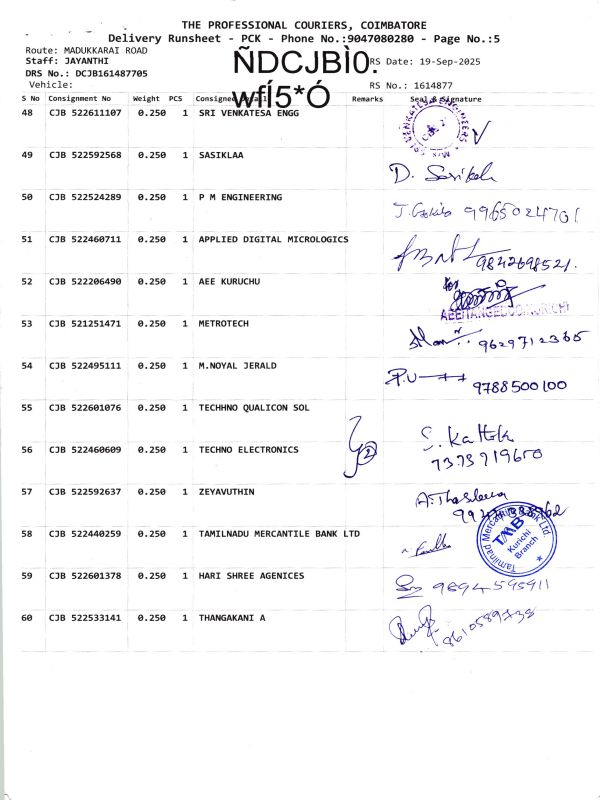 THE PROFESSIONAL COURIERS, COIMBATORE
Delivery Runsheet - PCK - Phone No.:9047080280 - Page No.:5
Route: MADUKKARAI ROAD
Staff: JAYANTHI ÑDCJBÌ0. RS Date: 19-Sep-2025
DRS No.: DCJB161487705
Vehicle: wfÍ5*Ó RS No.: 1614877
S No Consignment No Weight PCS Consignee Remarks Seal & Signature
48 CJB 522611107 0.250 1 SRI VENKATESA ENGG
49 CJB 522592568 0.250 1 SASIKLAA
50 CJB 522524289 0.250 1 P M ENGINEERING 9965024701
51 CJB 522460711 0.250 1 APPLIED DIGITAL MICROLOGICS 9842698521.
52 CJB 522206490 0.250 1 AEE KURUCHU
53 CJB 521251471 0.250 1 METROTECH 9629712365
54 CJB 522495111 0.250 1 M.NOYAL JERALD 9788500100
55 CJB 522601076 0.250 1 TECHHNO QUALICON SOL
56 CJB 522460609 0.250 1 TECHNO ELECTRONICS 2
57 CJB 522592637 0.250 1 ZEYAVUTHIN
58 CJB 522440259 0.250 1 TAMILNADU MERCANTILE BANK LTD
Tamilnad Mercantile Bank Ltd.
TMB
Kurichi
Branch
59 CJB 522601378 0.250 1 HARI SHREE AGENICES 9894595911
60 CJB 522533141 0.250 1 THANGAKANI A 8610589738